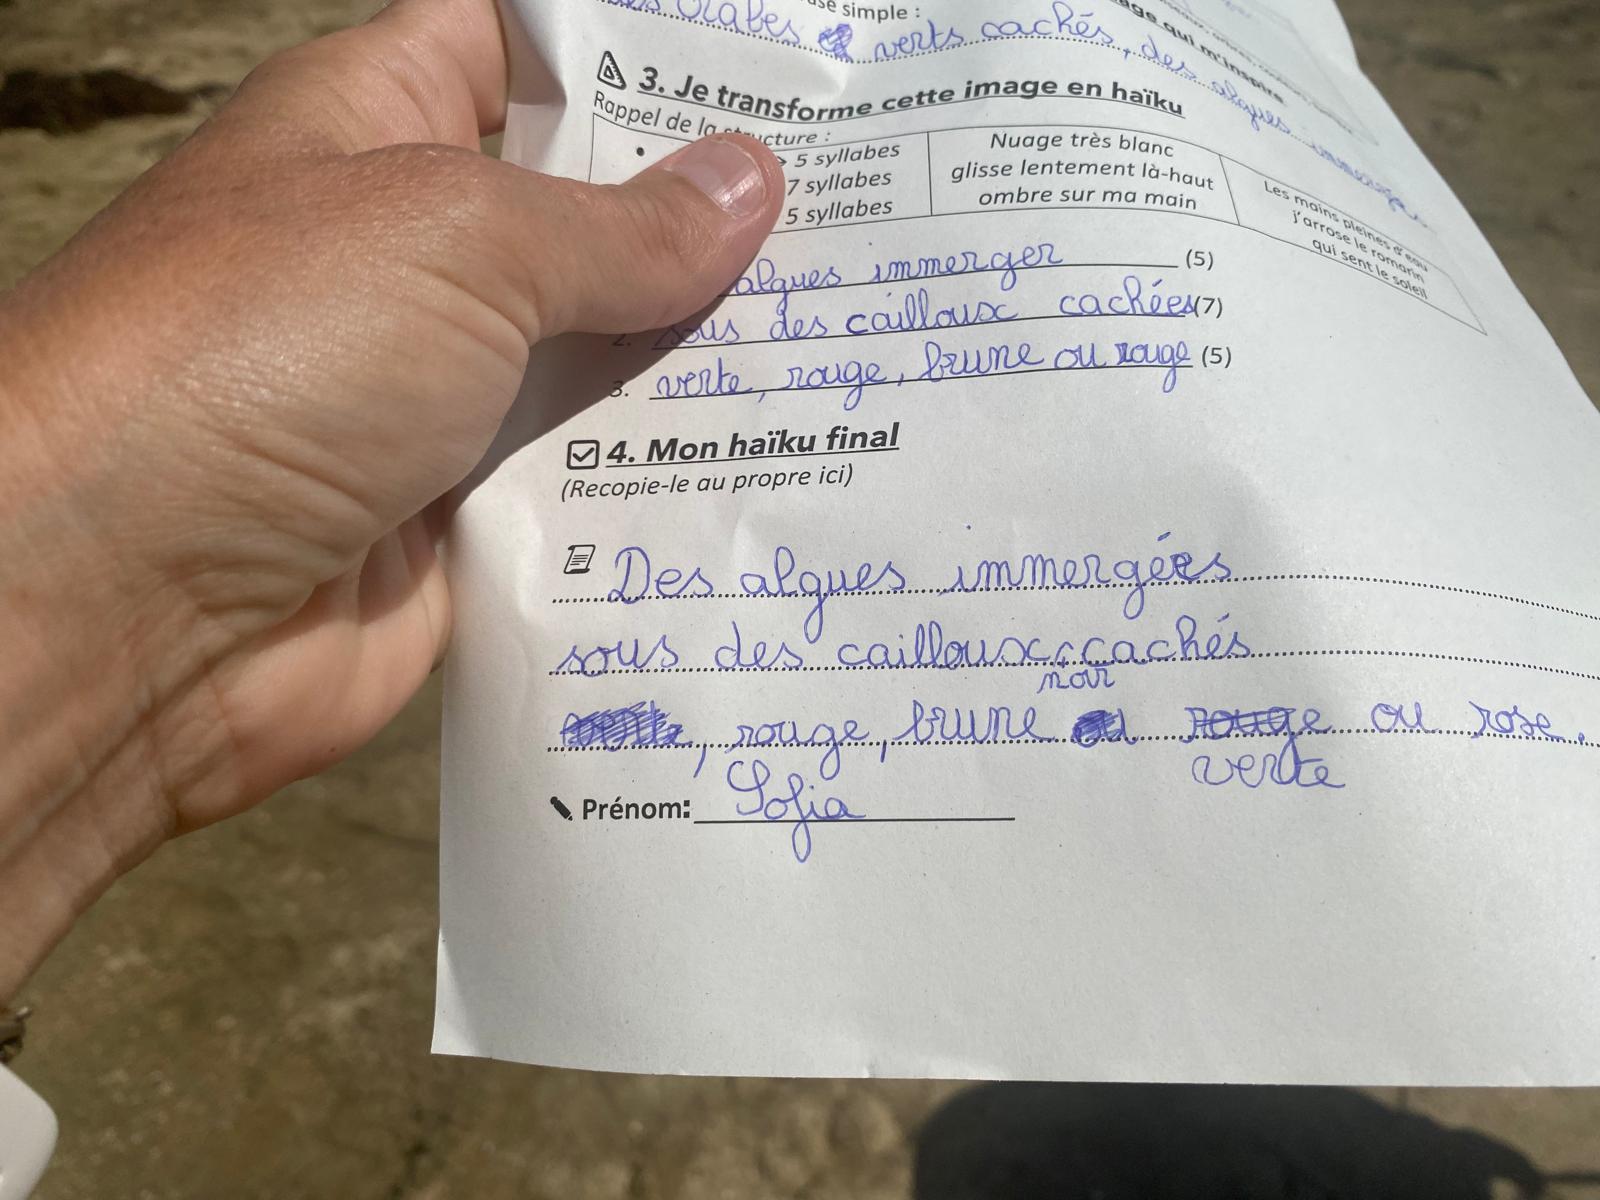 se simple :
crabes verts cachés, des algues
age qui m'inspire
3. Je transforme cette image en haïku
Rappel de la structure :
> 5 syllabes
7 syllabes
5 syllabes
Nuage très blanc
glisse lentement là-haut
ombre sur ma main
Les mains pleines d'eau
j'arrose le romarin
qui sent le soleil
algues immerger (5)
2. sous des cailloux cachées (7)
3. verte, rouge, brune ou rouge (5)
4. Mon haïku final
(Recopie-le au propre ici)
Des algues immergées
sous des cailloux cachés
noir
, rouge, brune ou rouge ou rose.
verte
Prénom: Sofia